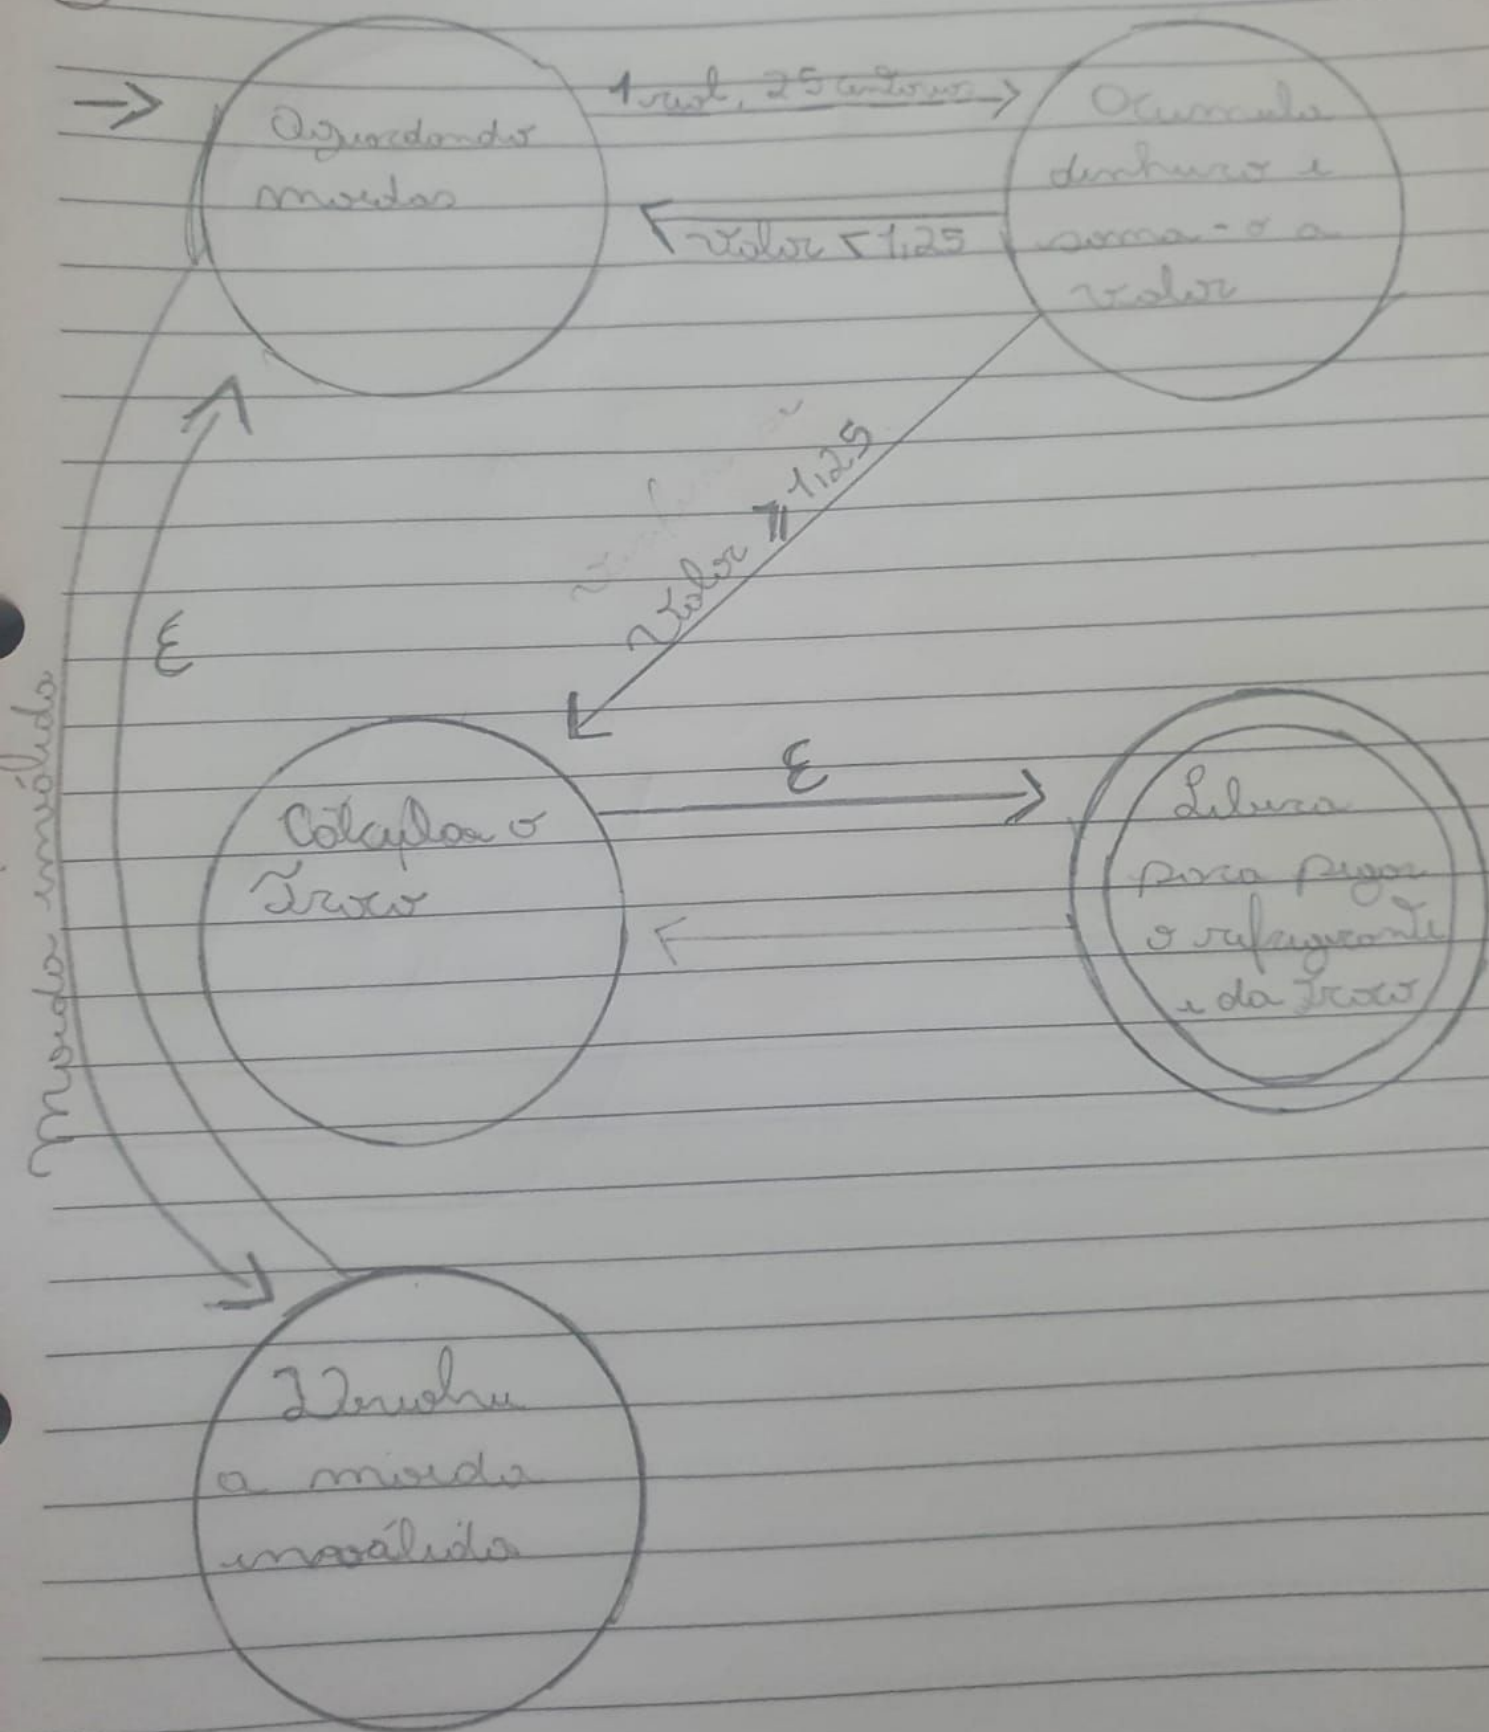 Aguardando
moedas
1 real, 25 centavos
Valor < 1,25
Acumula
dinheiro e
soma-o a
valor
Valor ≥ 1,25
ε
Moeda inválida
Cálcular o
Troco
ε
Libera
para pegar
o refrigerante
e da troco
Devolve
a moeda
inválida